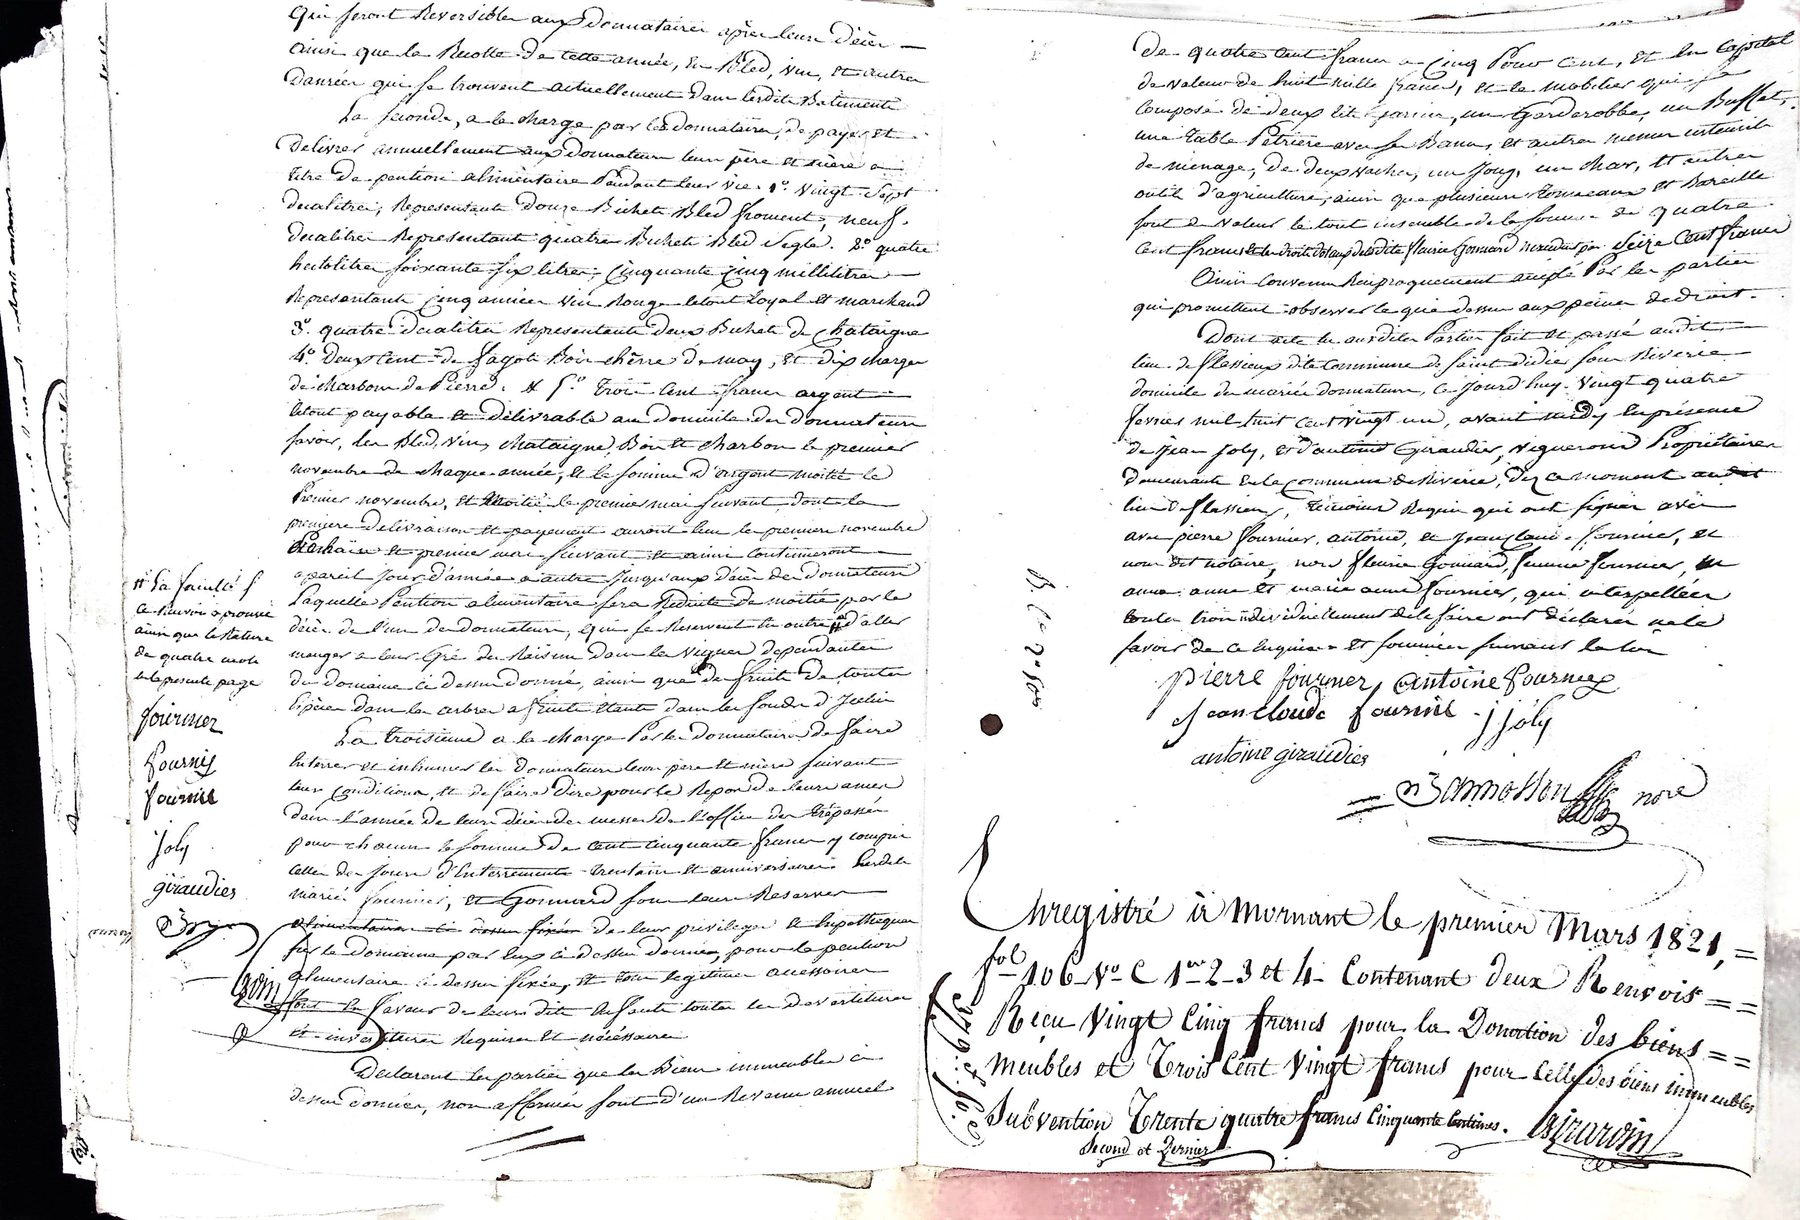 qui seront Reversibles aux Donnataires après leurs décès
ainsi que la Recolte de cette année, en Bled, vin, et autres
Danrées qui se trouvent actuellement dans lesdits Batiments
La seconde, a la charge par les donnataires, de payer et
Delivrer annuellement aux donnateurs leurs père et mère a
titre de pention alimentaire Pendant leur vie. 1° vingt sept
decalitres, Representants Douze Bichets Bled froment, neuf
decalitres Representant quatre Bichets Bled Segle. 2° quatre
hectolitres soixante six litres, cinquante cinq millilitres
Representants cinq années vin Rouge letout loyal et marchand
3° quatre decalitres Representants deux Bichets de chataigne
4° Deux cent de fagots Bois chêne de may, et dix charges
de charbons de Pierre. et 5° trois cent francs argent
letout payable et délivrable au domicile des donnateurs
savoir, les Bled, vin, chataigne, Bois et charbon le premier
novembre de chaque année, et la somme d'argent moitié le
Premier novembre, et Moitié le premier mai suivant dont la
première delivraison et payement auront lieu le premier novembre
Prochain et premier mai suivant et ainsi continueront
a pareil Jour d'année a autre Jusqu'aux décès des Donnateurs
Laquelle Pention alimentaire sera Reduite de moitié par le
décès de l'un des donnateurs, qui se Reservent en outre # d'aller
manger a leur Gré des Raisins dans les vignes dependantes
du domaine ci dessus donné, ainsi que des fruits de toutes
Espèces dans les arbres a fruits étants dans les fonds d'Icelui
La troisieme a la charge Par les Donnataires de faire
Enterrer et inhumer les donnateurs leurs père et mère suivant
leur condition, et de faire dire pour le Repos de leurs ames
dans l'année de leurs décès des messes de l'office des trépassés
pour chacun la somme de cent cinquante francs y compris
celles des jours d'Enterrements trentain et anniversaires. Lesdits
mariés fournier, et Gonnard sous leurs Reserves
alimentaires ci dessus fixées de leur privilège et hipothèque
sur le domaine par Eux ci dessus donné, pour la pention
alimentaire ci dessus fixée, et tous legitimes accessoires
sont en faveur de leurs dits Enfants toutes les devestitures
et investitures Requises et nécéssaires
Declarent les parties que les Biens immeubles ci
dessus donnés, non affermés sont d'un Revenu annuel
# La faculté
ainsi que la Rature
de quatre mots
a la presente page
fournier
fournier
fournier
joly
giraudier
de quatre cent francs a cinq Pour cent, et en capital
de valeur de huit mille francs, et le mobilier qui se
compose de deux lits garnis, un Garderobbe, un Buffet,
une table Pétrière avec ses Bancs, et autres menus ustensils
de menage, de deux vaches, un Joug, un char, et autres
outils d'agriculture, ainsi que plusieurs tonneaux et Bareille
sont de valeur le tout ensemble de la somme de quatre
cent francs
Ainsi convenu Reciproquement accepté Par les parties
qui promettent observer le que dessus aux peines de droit.
Dont acte les susdites Parties fait et passé audit
lieu de flassieux dite commune de saint didier sous Riverie
domicile des mariés donnateurs, ce Jourd'huy vingt quatre
fevrier mil huit cent vingt un, avant midy En présence
de Jean Joly, et d'antoine Giraudier, vignerons Propriétaires
demeurants en la commune de Riverie, dez ce moment audit
lieu de flassieux, témoins Requis qui ont signé avec
avec pierre fournier, antoine, et Jean claude fournier, et
nous dit notaire, non fleurie Gonnard, femme fournier, ni
anne anne et marie anne fournier, qui interpellées
toutes trois individuellement de le faire ont déclaré ne le
savoir de ce Enquises et sommées suivant la loi
pierre fournier antoine fournier
Jean claude fournier j joly
antoine giraudier
nore
Enregistré à Mornant le premier Mars 1821,
fol 106 vo C 1re 2-3 et 4 Contenant deux Renvois
Reçu Vingt Cinq francs pour la Donation des biens
Meubles et Trois Cent Vingt francs pour Celle des biens immeubles
Subvention Trente quatre francs Cinquante Centimes. Girardin
Second et Dernier